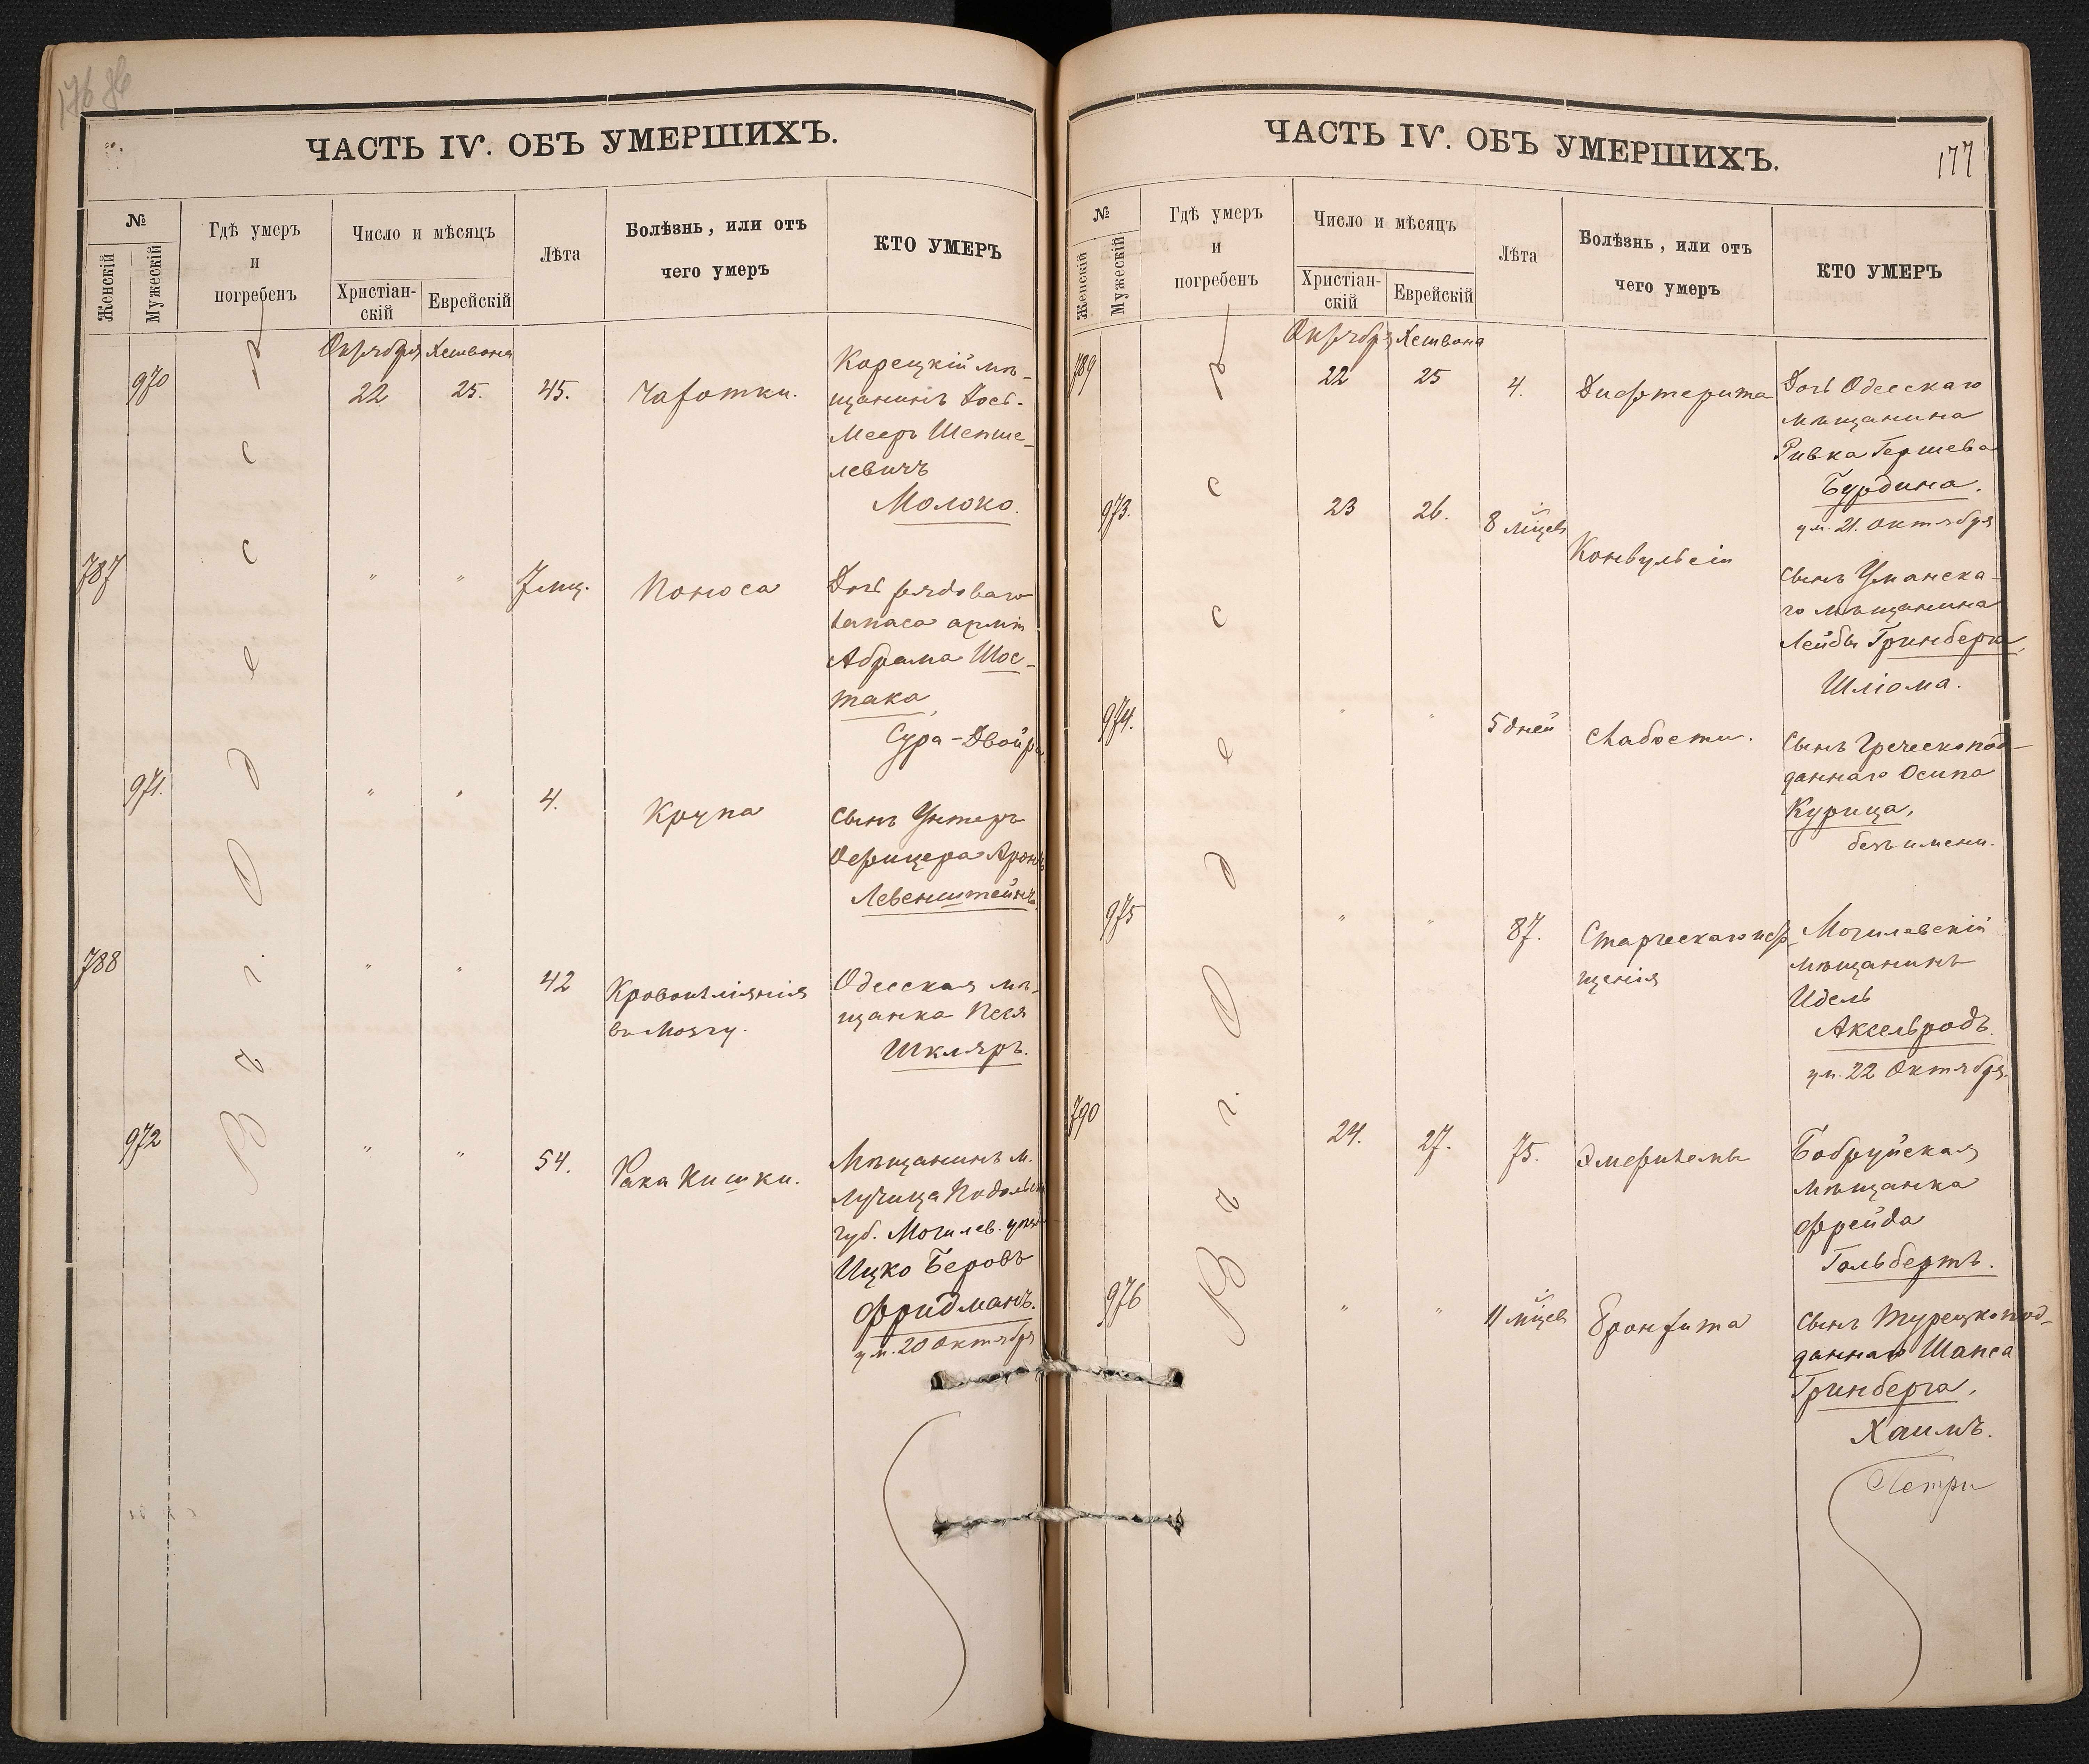 176
ЧАСТЬ IV. ОБЪ УМЕРШИХЪ.
№
Женскій
Мужескій
Гдѣ умеръ
и
погребенъ
Число и мѣсяцъ
Христіан-
скій
Еврейскій
Лѣта
Болѣзнь, или отъ
чего умеръ
КТО УМЕРЪ
Въ г. Одессѣ
Октября Хешвана
970
22
25.
45.
Чахотки.
Корецкій мѣ-
щанинъ Іось-
Мееръ Шепше-
левичъ
Молоко.
787
"
"
7 мц.
Поноса
Дочь рядоваго
запаса арміи
Абрама Шос-
така,
Сура-Двойра
971.
"
"
4.
Крупа
Сынъ Унтеръ
Офицера Аронъ
Левенштейнъ.
788
"
"
42
Кровоизліянія
въ мозгу.
Одесская мѣ-
щанка Песя
Шкляръ.
972
"
"
54.
Рака кишки.
Мѣщанинъ м.
Лучинца Подольск
губ. Могилев. уѣз
Ицко Беровъ
Фридманъ.
ум. 20 Октября
ЧАСТЬ IV. ОБЪ УМЕРШИХЪ.
177
№
Женскій
Мужескій
Гдѣ умеръ
и
погребенъ
Число и мѣсяцъ
Христіан-
скій
Еврейскій
Лѣта
Болѣзнь, или отъ
чего умеръ
КТО УМЕРЪ
Въ г. Одессѣ
Октября Хешвана
789
22
25
4.
Дифтерита
Дочь Одесскаго
мѣщанина
Ривка Гершева
Бурдина.
ум. 21. Октября
973.
23
26.
8 мѣцев
Конвульсіи
Сынъ Уманска-
го мѣщанина
Лейбы Гринберга,
Шліома.
974.
"
"
5 дней
Слабости.
Сынъ Греческопод-
даннаго Осипа
Курица,
безъ имени.
975
"
"
87.
Старческаго исто-
щенія
Могилевскій
мѣщанинъ
Идель
Аксельродъ.
ум. 22 Октября.
790
24.
27.
75.
Эмфиземы
Бобруйская
мѣщанка
Фрейда
Гольбертъ.
976
"
"
11 мѣцев
Бронхита
Сынъ Турецкопод-
даннаго Шапса
Гринберга,
Хаимъ.